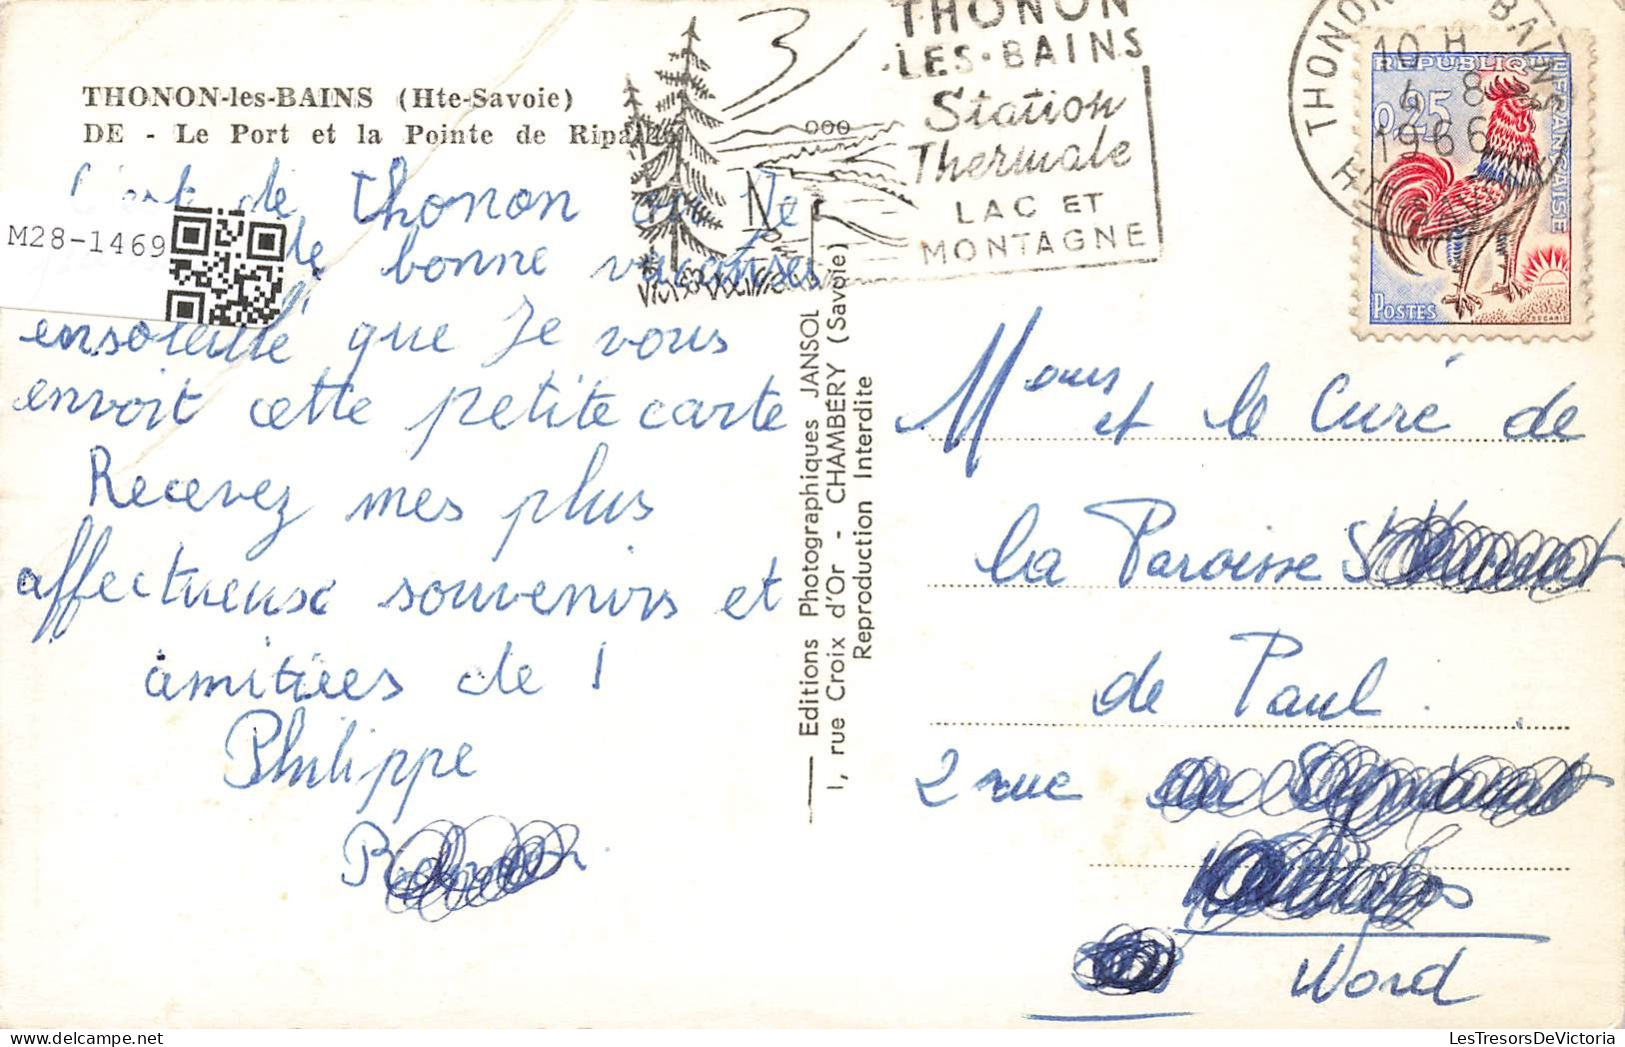 THONON-les-BAINS (Hte-Savoie)
DE - Le Port et la Pointe de Ripaille
C'est de Thonon
de bonne vacanses
ensoleillé que Je vous
envoit cette petite carte
Recevez mes plus
affectueuse souvenirs et
amitiées de !
Philippe
M28-1469
THONON
·LES·BAINS
Station
Thermale
LAC ET
MONTAGNE
THONON BAINS
10 H
4 8
1966
Hte SAVOIE
REPUBLIQUE FRANÇAISE
0,25
POSTES
DECARIS
Editions Photographiques JANSOL
1, rue Croix d'Or - CHAMBÉRY (Savoie)
Reproduction Interdite
Mours et le Curé de
la Paroisse St
de Paul.
2 rue
Nord
LesTresorsDeVictoria